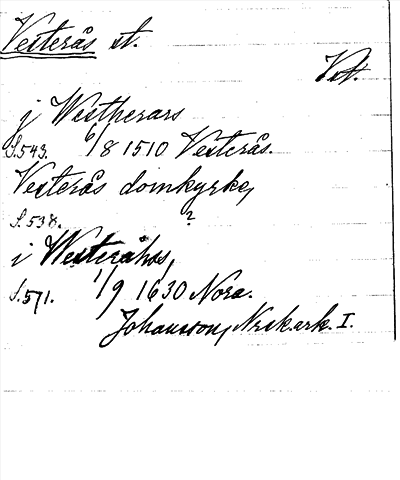 Vesterås st.
Vstm.
j Westherars
S.543. 6/8 1510 Vesterås.
Vesterås domkyrka,
S.538. ?
i Westeråhs,
S.571. 1/9 1630 Nora.
Johansson, Nrsk.ark. I.